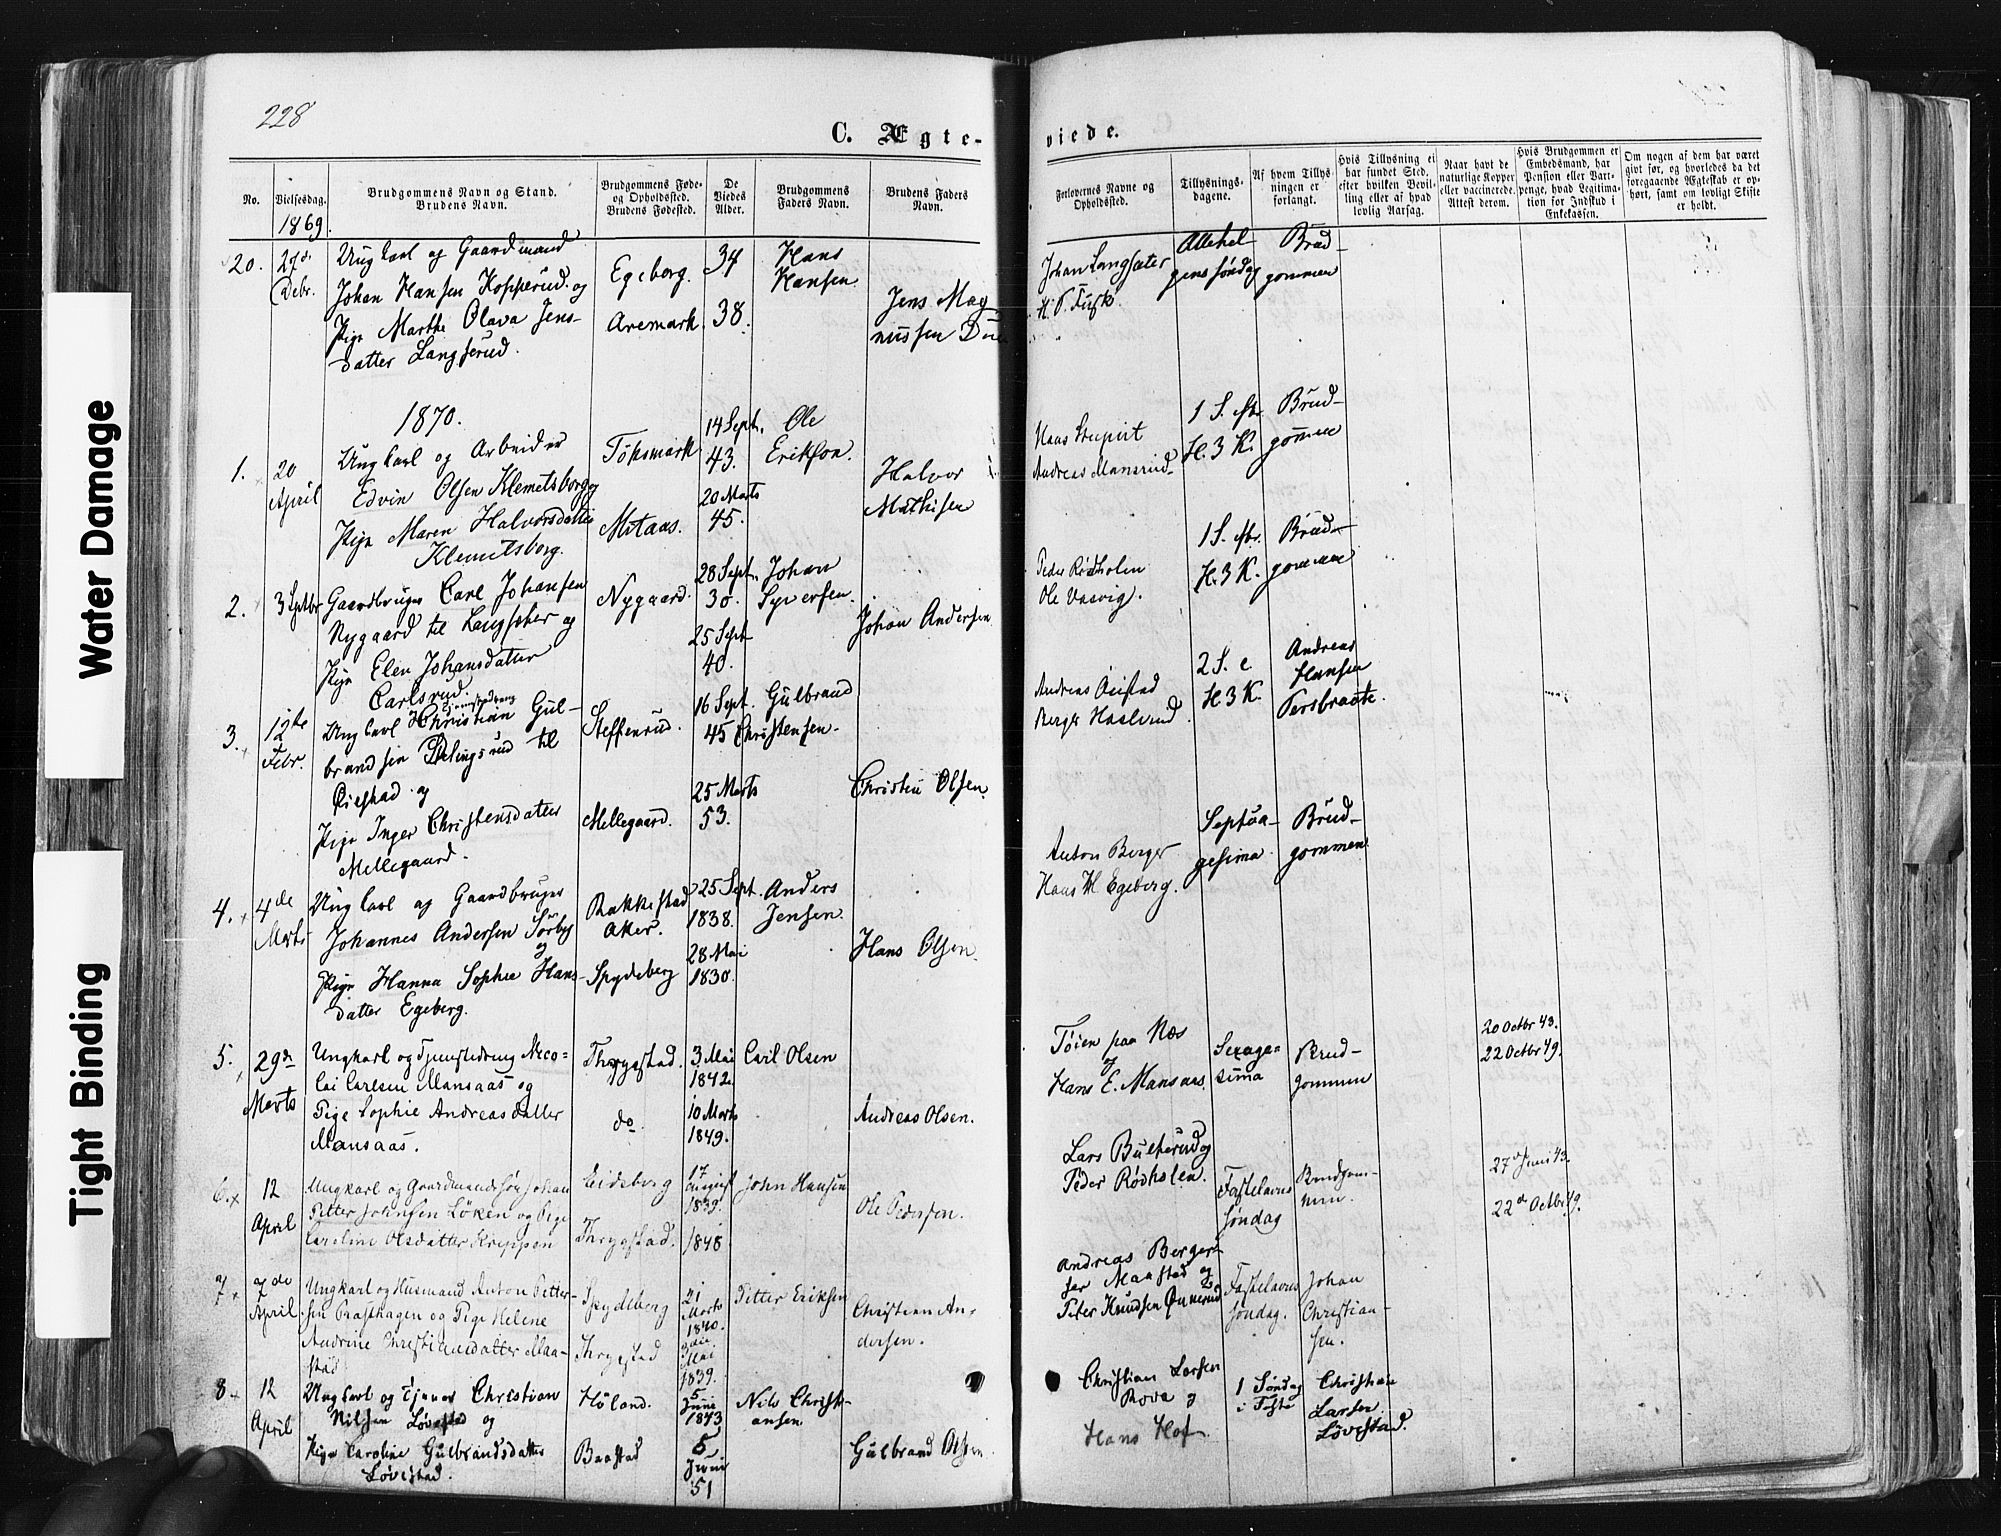 Water Damage
Tight Binding
228
C. Ægte-
viede.
No.
Vielsesdag.
Brudgommens Navn og Stand.
Brudens Navn.
Brudgommens Føde-
og Opholdssted.
Brudens Fødested.
De
Viedes
Alder.
Brudgommens
Faders Navn.
Brudens Faders
Navn.
Forlovernes Navne og
Opholdssted.
Tillysnings-
dagene.
Af hvem Tillys-
ningen er
forlangt.
Hvis Tillysning ei
har fundet Sted,
efter hvilken Bevil-
ling eller af hvad
lovlig Aarsag.
Naar havt de
naturlige Kopper
eller vaccinerede.
Attest derom.
Hvis Brudgommen er
Embedsmand, har
Pension eller Vart-
penge, hvad Legitima-
tion for Indskud i
Enkekassen.
Om nogen af dem har været
gift før, og hvorledes da det
foregaaende Ægteskab er op-
hørt, samt om lovligt Skifte
er holdt.
1869.
20.
27de
Debr.
Ungkarl og Gaardmand
Johan Hansen Kopperud og
Pige Marthe Olava Jens-
datter Langserud.
Egeberg.
Aremark.
34
38.
Hans
Hansen
Jens Mag
nussen
Johan Langsæter
Allehel
gens søndag
Brud-
gommen
1870.
1.
20
April
Ungkarl og Arbeider
Edvin Olsen Klemetsborg og
Pige Maren Halvorsdatter
Klemetsborg.
14 Sept.
43.
20 Marts
45.
Ole
Erikson.
Halvor
Mathisen
Andreas Mansrud
H. 3 K.
Brud-
gommen
2.
3 Septbr
Gaardbruger Carl Johansen
Nygaard til Langsæter og
Pige Elen Johansdatter
Carlsrud.
Nygaard.
28 Sept.
30.
25 Sept
40.
Johan
Syversen.
Johan Andersen
Peder Rødholen
Ole Vasvig.
H. 3 K.
Brud-
gommen
3.
12te
Febr.
Ungkarl Christian Gul-
brandsen til
Øiestad og
Pige Inger Christensdatter
Mellegaard.
Steffenrud.
Mellegaard.
16 Sept.
45
25 Marts
53.
Gulbrand
Christensen.
Christen Olsen
Andreas Øiestad
Berger Haslerud
2 S. e
H. 3 K.
Andreas
Hansen
Persbraate.
4.
4de
Marts
Ungkarl og Gaardbruger
Johannes Andersen Sørby
og
Pige Hanna Sophie Hans-
datter Egeberg.
Rakkestad
Aker.
Spydeberg
25 Sept.
1838.
28 Mai
1830.
Anders
Jensen.
Hans Olsen.
Anton Berger
Hans M Egeberg.
Septua-
gesima
Brud-
gommen
5.
29de
Marts
Ungkarl og Tjenestedreng Nico=
lai Carlsen Mansaas og
Pige Sophie Andreasdatter
Mansaas.
Thrygstad.
do.
3 Mai
1842
10 Marts
1849.
Carl Olsen
Andreas Olsen.
Tøien paa Næs
og
Hans E. Mansaas
Sexage=
sima
Brud-
gommen
20 Octbr 43.
22 Octbr 49.
6.
12
April
Ungkarl og Gaardmandssøn Johan
Petter Johnsen Løken og Pige
Caroline Olsdatter Kreppen
Eidsberg
Thrygstad.
17
August
1839.
1848
John Hansen
Ole Pedersen.
Lars Bulterud og
Peder Rødholen.
Fastelavns
søndag
Brudgom-
men.
27de Juni 43.
22de Octbr 49.
7
7de
April
Ungkarl og Husmand Anton Petter-
sen Præsthagen og Pige Helene
Andrine Christiansdatter Maa-
stad
Spydeberg
Thrygstad
21
Marts
1840.
Mai
1839.
Petter Eriksen
Christian An-
dersen.
Andreas Berger-
sen Maastad og
Peter Knudsen Ønnerud
Fastelavns
søndag.
Johan
Christian-
sen.
8
12
April
Ungkarl og Tjener Christian
Nilsen Løvestad og
Pige Caroline Gulbrandsdatter
Løvestad.
Høland.
Baastad
5
Juni
1843
5
Juni
51
Nils Christi-
ansen
Gulbrand Olsen
Christian Larsen
og
Hans Hof
1 Søndag
i Faste
Christian
Larsen
Løvestad.